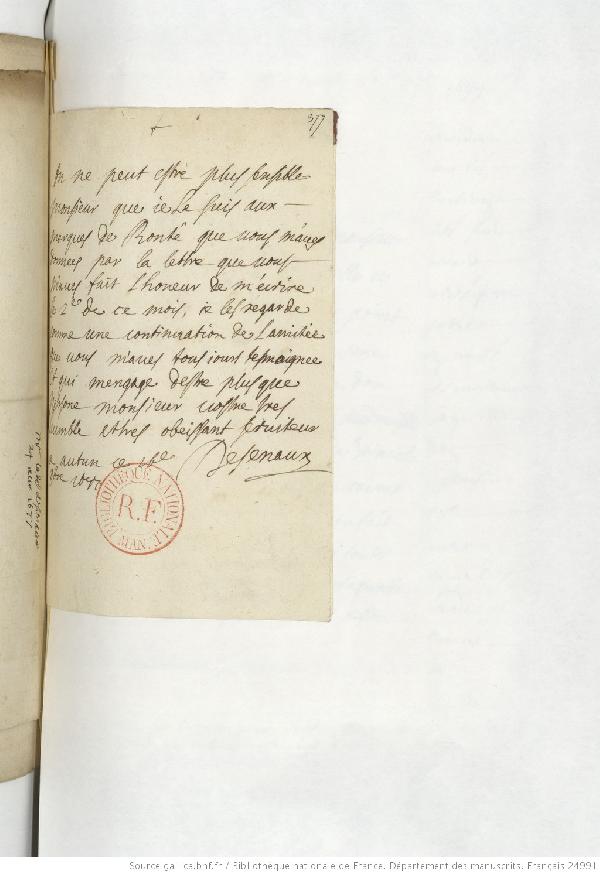 377
On ne peut estre plus sensible
monsieur que ie le suis aux
marques de Bonté que vous m'aves
donnees par la lettre que vous
m'aves fait l'honeur de m'ecrire
le 2e de ce mois, ie les regarde
comme une continuation de l'amitiée
que vous m'aves tousiours tesmoignee
et qui m'engage d'estre plus que
persone monsieur vostre tres
humble et tres obeissant serviteur
a autun ce
Desenaux
BIBLIOTHEQUE NATIONALE
R.F.
MAN.
1677
Source gallica.bnf.fr / Bibliothèque nationale de France. Département des manuscrits. Français 24991